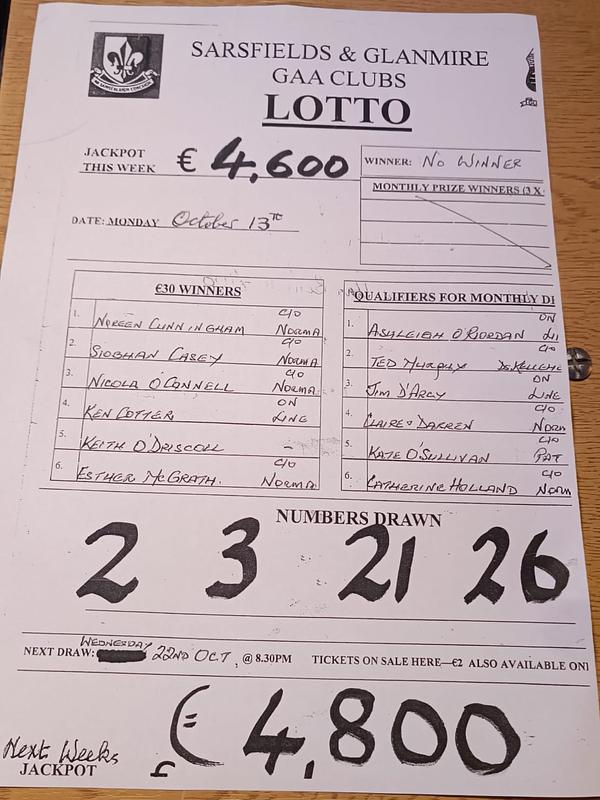 SARSFIELDS & GLANMIRE
GAA CLUBS
LOTTO
JACKPOT
THIS WEEK € 4,600
WINNER: NO WINNER
MONTHLY PRIZE WINNERS (3 X
DATE: MONDAY October 13TH
€30 WINNERS
1. NOREEN CUNNINGHAM C/O NORMA
2. SIOBHAN CASEY C/O NORMA
3. NICOLA O'CONNELL C/O NORMA
4. KEN COTTER ON LINE
5. KEITH O'DRISCOLL -
6. ESTHER McGRATH. C/O NORMA
QUALIFIERS FOR MONTHLY DI
1. ASHLEIGH O'RIORDAN ON LI
2. TED MURPHY C/O
3. JIM D'ARCY ON LINE
4. CLAIRE & DARREN C/O NORM
5. KATE O'SULLIVAN C/O PAT
6. CATHERINE HOLLAND C/O NORM
NUMBERS DRAWN
2 3 21 26
NEXT DRAW: WEDNESDAY 22ND OCT, @ 8.30PM TICKETS ON SALE HERE—€2 ALSO AVAILABLE ONI
Next Weeks
JACKPOT € 4,800